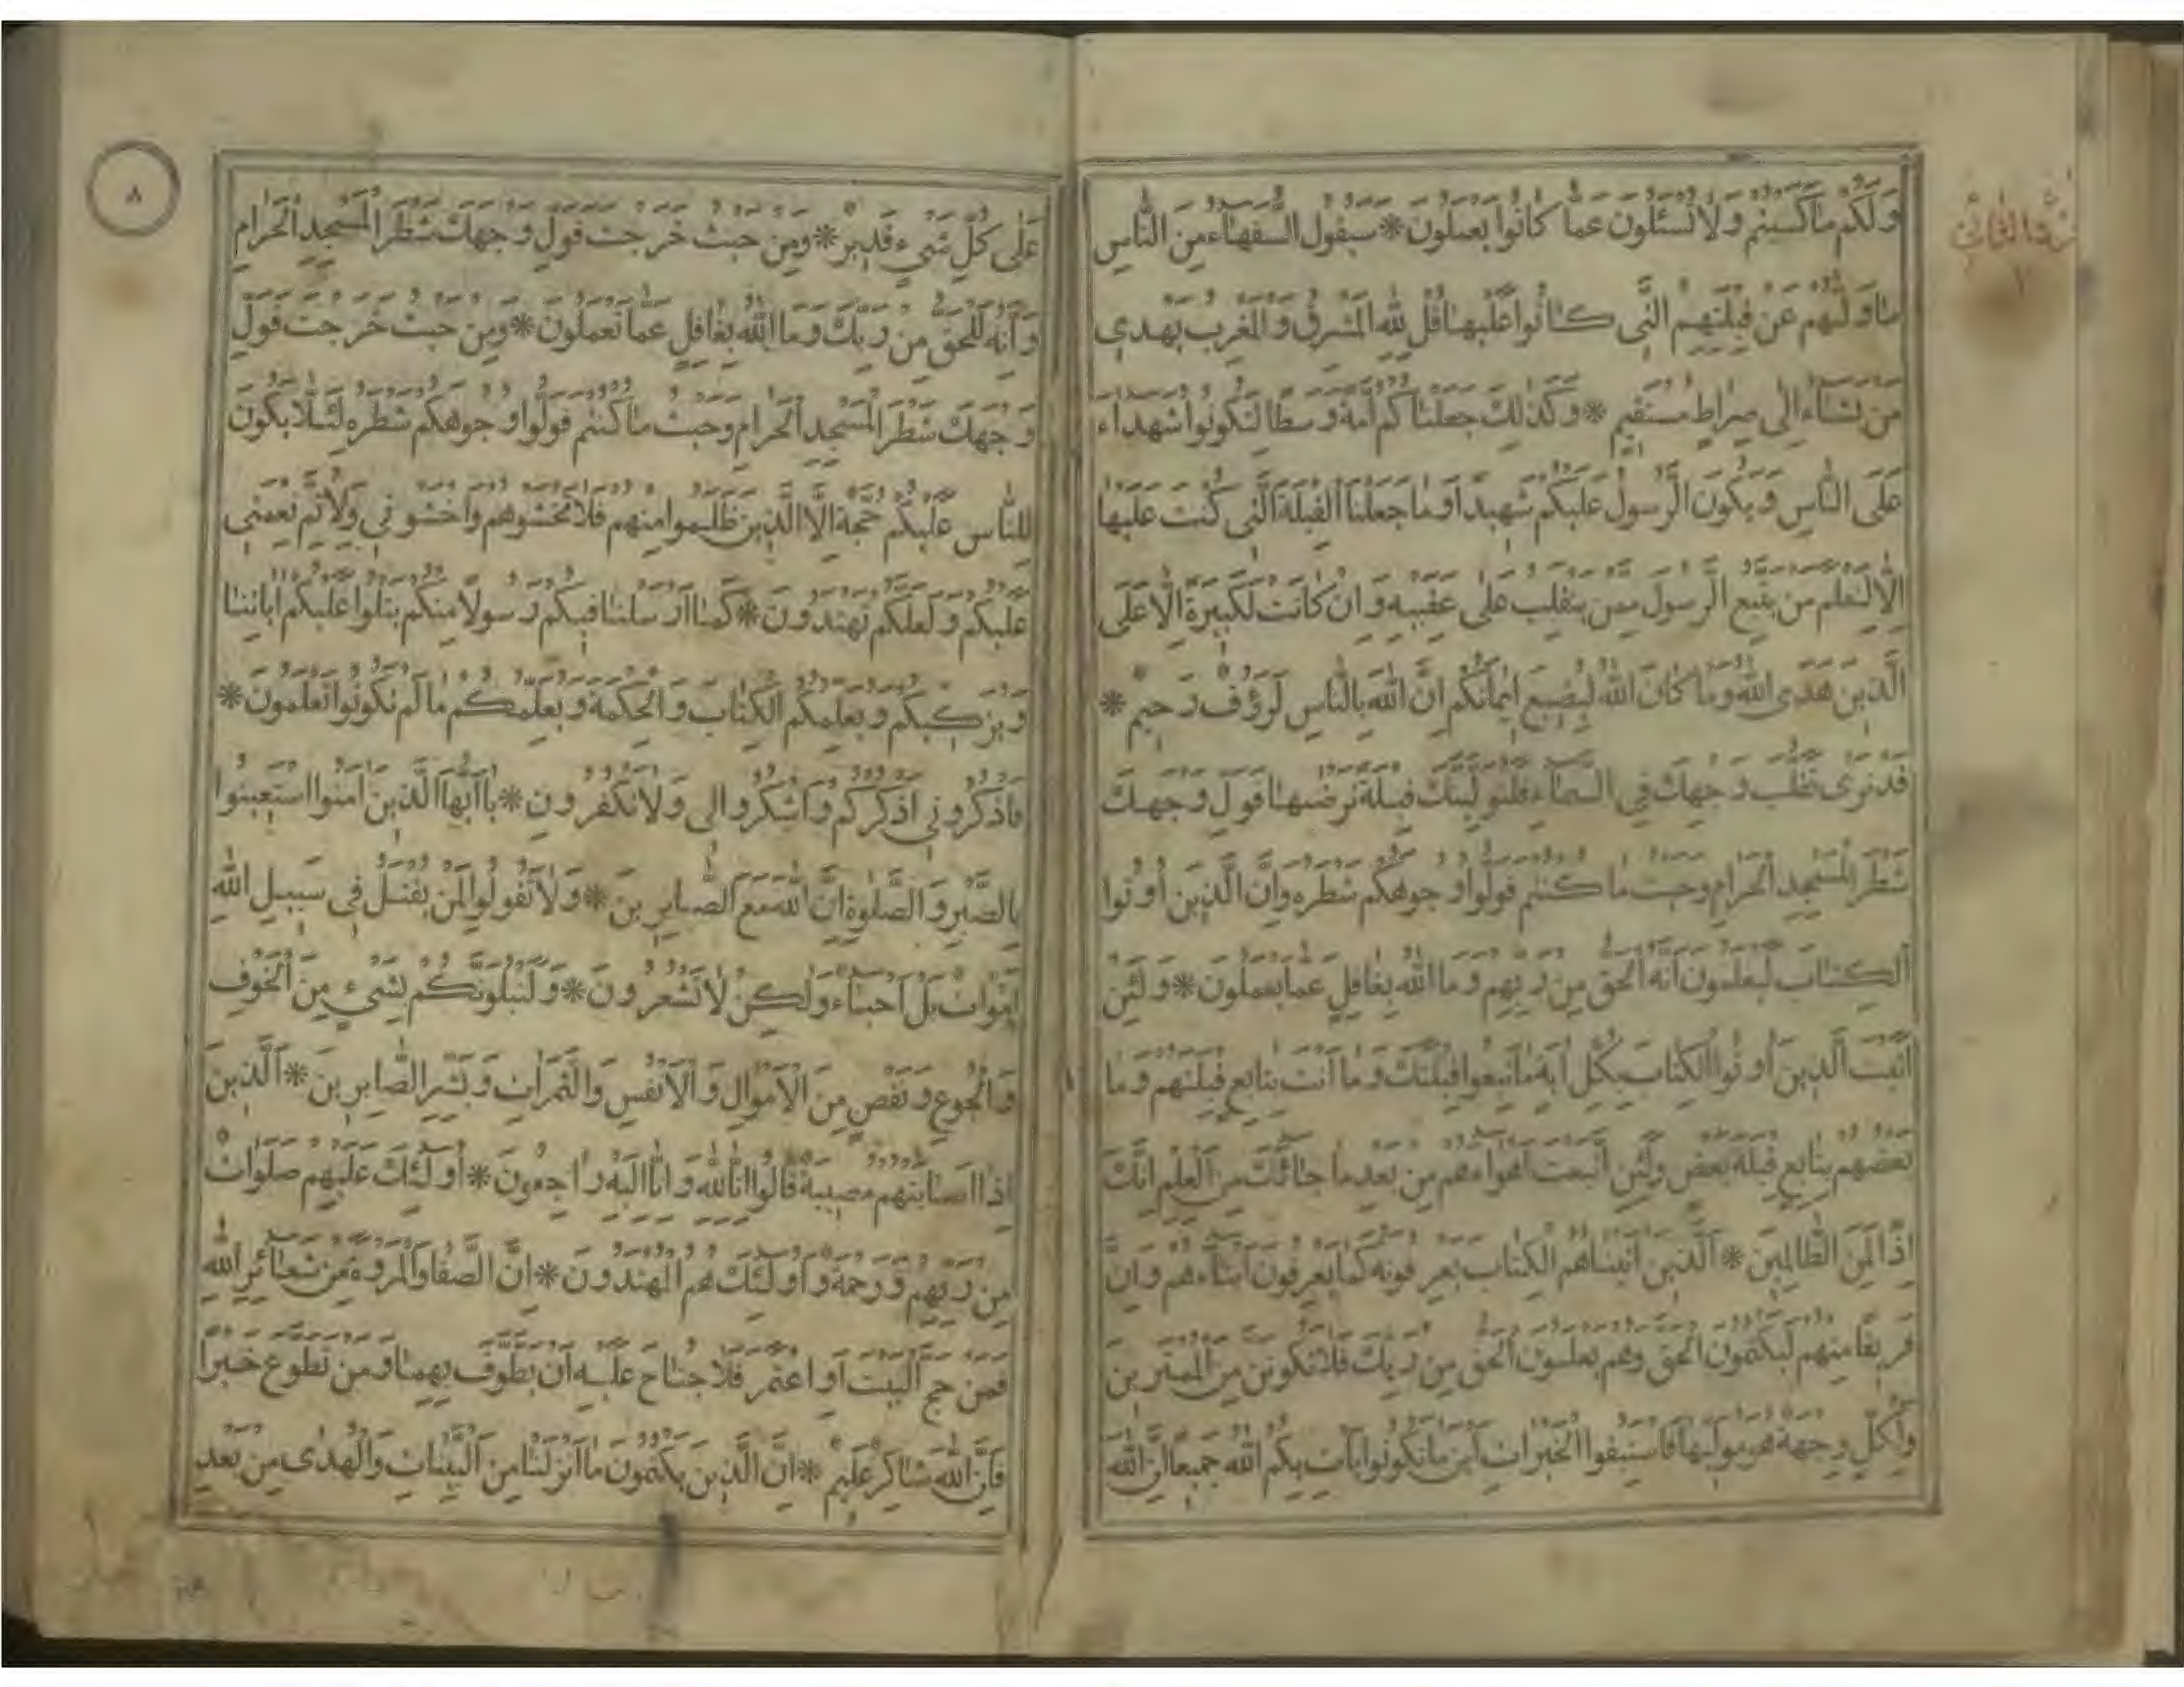 وَلَكُمْ مَا كَسَبْتُمْ وَلَا تُسْئَلُونَ عَمَّا كَانُوا يَعْمَلُونَ * سَيَقُولُ السُّفَهَاءُ مِنَ النَّاسِ
مَا وَلّٰيهُمْ عَنْ قِبْلَتِهِمُ الَّتِي كَانُوا عَلَيْهَا قُلْ لِلّٰهِ الْمَشْرِقُ وَالْمَغْرِبُ يَهْدِي
مَنْ يَشَاءُ اِلٰى صِرَاطٍ مُسْتَقِيمٍ * وَكَذٰلِكَ جَعَلْنَاكُمْ اُمَّةً وَسَطًا لِتَكُونُوا شُهَدَاءَ
عَلَى النَّاسِ وَيَكُونَ الرَّسُولُ عَلَيْكُمْ شَهِيدًا وَمَا جَعَلْنَا الْقِبْلَةَ الَّتِي كُنْتَ عَلَيْهَا
اِلَّا لِنَعْلَمَ مَنْ يَتَّبِعُ الرَّسُولَ مِمَّنْ يَنْقَلِبُ عَلٰى عَقِبَيْهِ وَاِنْ كَانَتْ لَكَبِيرَةً اِلَّا عَلَى
الَّذِينَ هَدَى اللّٰهُ وَمَا كَانَ اللّٰهُ لِيُضِيعَ اِيمَانَكُمْ اِنَّ اللّٰهَ بِالنَّاسِ لَرَؤُفٌ رَحِيمٌ *
قَدْ نَرٰى تَقَلُّبَ وَجْهِكَ فِي السَّمَاءِ فَلَنُوَلِّيَنَّكَ قِبْلَةً تَرْضٰيهَا فَوَلِّ وَجْهَكَ
شَطْرَ الْمَسْجِدِ الْحَرَامِ وَحَيْثُ مَا كُنْتُمْ فَوَلُّوا وُجُوهَكُمْ شَطْرَهُ وَاِنَّ الَّذِينَ اُوتُوا
الْكِتَابَ لَيَعْلَمُونَ اَنَّهُ الْحَقُّ مِنْ رَبِّهِمْ وَمَا اللّٰهُ بِغَافِلٍ عَمَّا يَعْمَلُونَ * وَلَئِنْ
اَتَيْتَ الَّذِينَ اُوتُوا الْكِتَابَ بِكُلِّ اٰيَةٍ مَا تَبِعُوا قِبْلَتَكَ وَمَا اَنْتَ بِتَابِعٍ قِبْلَتَهُمْ وَمَا
بَعْضُهُمْ بِتَابِعٍ قِبْلَةَ بَعْضٍ وَلَئِنِ اتَّبَعْتَ اَهْوَاءَهُمْ مِنْ بَعْدِ مَا جَائَكَ مِنَ الْعِلْمِ اِنَّكَ
اِذًا لَمِنَ الظَّالِمِينَ * اَلَّذِينَ اٰتَيْنَاهُمُ الْكِتَابَ يَعْرِفُونَهُ كَمَا يَعْرِفُونَ اَبْنَاءَهُمْ وَاِنَّ
فَرِيقًا مِنْهُمْ لَيَكْتُمُونَ الْحَقَّ وَهُمْ يَعْلَمُونَ اَلْحَقُّ مِنْ رَبِّكَ فَلَا تَكُونَنَّ مِنَ الْمُمْتَرِينَ
وَلِكُلٍّ وِجْهَةٌ هُوَ مُوَلِّيهَا فَاسْتَبِقُوا الْخَيْرَاتِ اَيْنَ مَا تَكُونُوا يَأْتِ بِكُمُ اللّٰهُ جَمِيعًا اِنَّ اللّٰهَ
٨
عَلٰى كُلِّ شَيْءٍ قَدِيرٌ * وَمِنْ حَيْثُ خَرَجْتَ فَوَلِّ وَجْهَكَ شَطْرَ الْمَسْجِدِ الْحَرَامِ
وَاِنَّهُ لَلْحَقُّ مِنْ رَبِّكَ وَمَا اللّٰهُ بِغَافِلٍ عَمَّا تَعْمَلُونَ * وَمِنْ حَيْثُ خَرَجْتَ فَوَلِّ
وَجْهَكَ شَطْرَ الْمَسْجِدِ الْحَرَامِ وَحَيْثُ مَا كُنْتُمْ فَوَلُّوا وُجُوهَكُمْ شَطْرَهُ لِئَلَّا يَكُونَ
لِلنَّاسِ عَلَيْكُمْ حُجَّةٌ اِلَّا الَّذِينَ ظَلَمُوا مِنْهُمْ فَلَا تَخْشَوْهُمْ وَاخْشَوْنِي وَلِاُتِمَّ نِعْمَتِي
عَلَيْكُمْ وَلَعَلَّكُمْ تَهْتَدُونَ * كَمَا اَرْسَلْنَا فِيكُمْ رَسُولًا مِنْكُمْ يَتْلُوا عَلَيْكُمْ اٰيَاتِنَا
وَيُزَكِّيكُمْ وَيُعَلِّمُكُمُ الْكِتَابَ وَالْحِكْمَةَ وَيُعَلِّمُكُمْ مَا لَمْ تَكُونُوا تَعْلَمُونَ *
فَاذْكُرُونِي اَذْكُرْكُمْ وَاشْكُرُوا لِي وَلَا تَكْفُرُونِ * يَا اَيُّهَا الَّذِينَ اٰمَنُوا اسْتَعِينُوا
بِالصَّبْرِ وَالصَّلٰوةِ اِنَّ اللّٰهَ مَعَ الصَّابِرِينَ * وَلَا تَقُولُوا لِمَنْ يُقْتَلُ فِي سَبِيلِ اللّٰهِ
اَمْوَاتٌ بَلْ اَحْيَاءٌ وَلٰكِنْ لَا تَشْعُرُونَ * وَلَنَبْلُوَنَّكُمْ بِشَيْءٍ مِنَ الْخَوْفِ
وَالْجُوعِ وَنَقْصٍ مِنَ الْاَمْوَالِ وَالْاَنْفُسِ وَالثَّمَرَاتِ وَبَشِّرِ الصَّابِرِينَ * اَلَّذِينَ
اِذَا اَصَابَتْهُمْ مُصِيبَةٌ قَالُوا اِنَّا لِلّٰهِ وَاِنَّا اِلَيْهِ رَاجِعُونَ * اُولٰئِكَ عَلَيْهِمْ صَلَوَاتٌ
مِنْ رَبِّهِمْ وَرَحْمَةٌ وَاُولٰئِكَ هُمُ الْمُهْتَدُونَ * اِنَّ الصَّفَا وَالْمَرْوَةَ مِنْ شَعَائِرِ اللّٰهِ
فَمَنْ حَجَّ الْبَيْتَ اَوِ اعْتَمَرَ فَلَا جُنَاحَ عَلَيْهِ اَنْ يَطَّوَّفَ بِهِمَا وَمَنْ تَطَوَّعَ خَيْرًا
فَاِنَّ اللّٰهَ شَاكِرٌ عَلِيمٌ * اِنَّ الَّذِينَ يَكْتُمُونَ مَا اَنْزَلْنَا مِنَ الْبَيِّنَاتِ وَالْهُدٰى مِنْ بَعْدِ